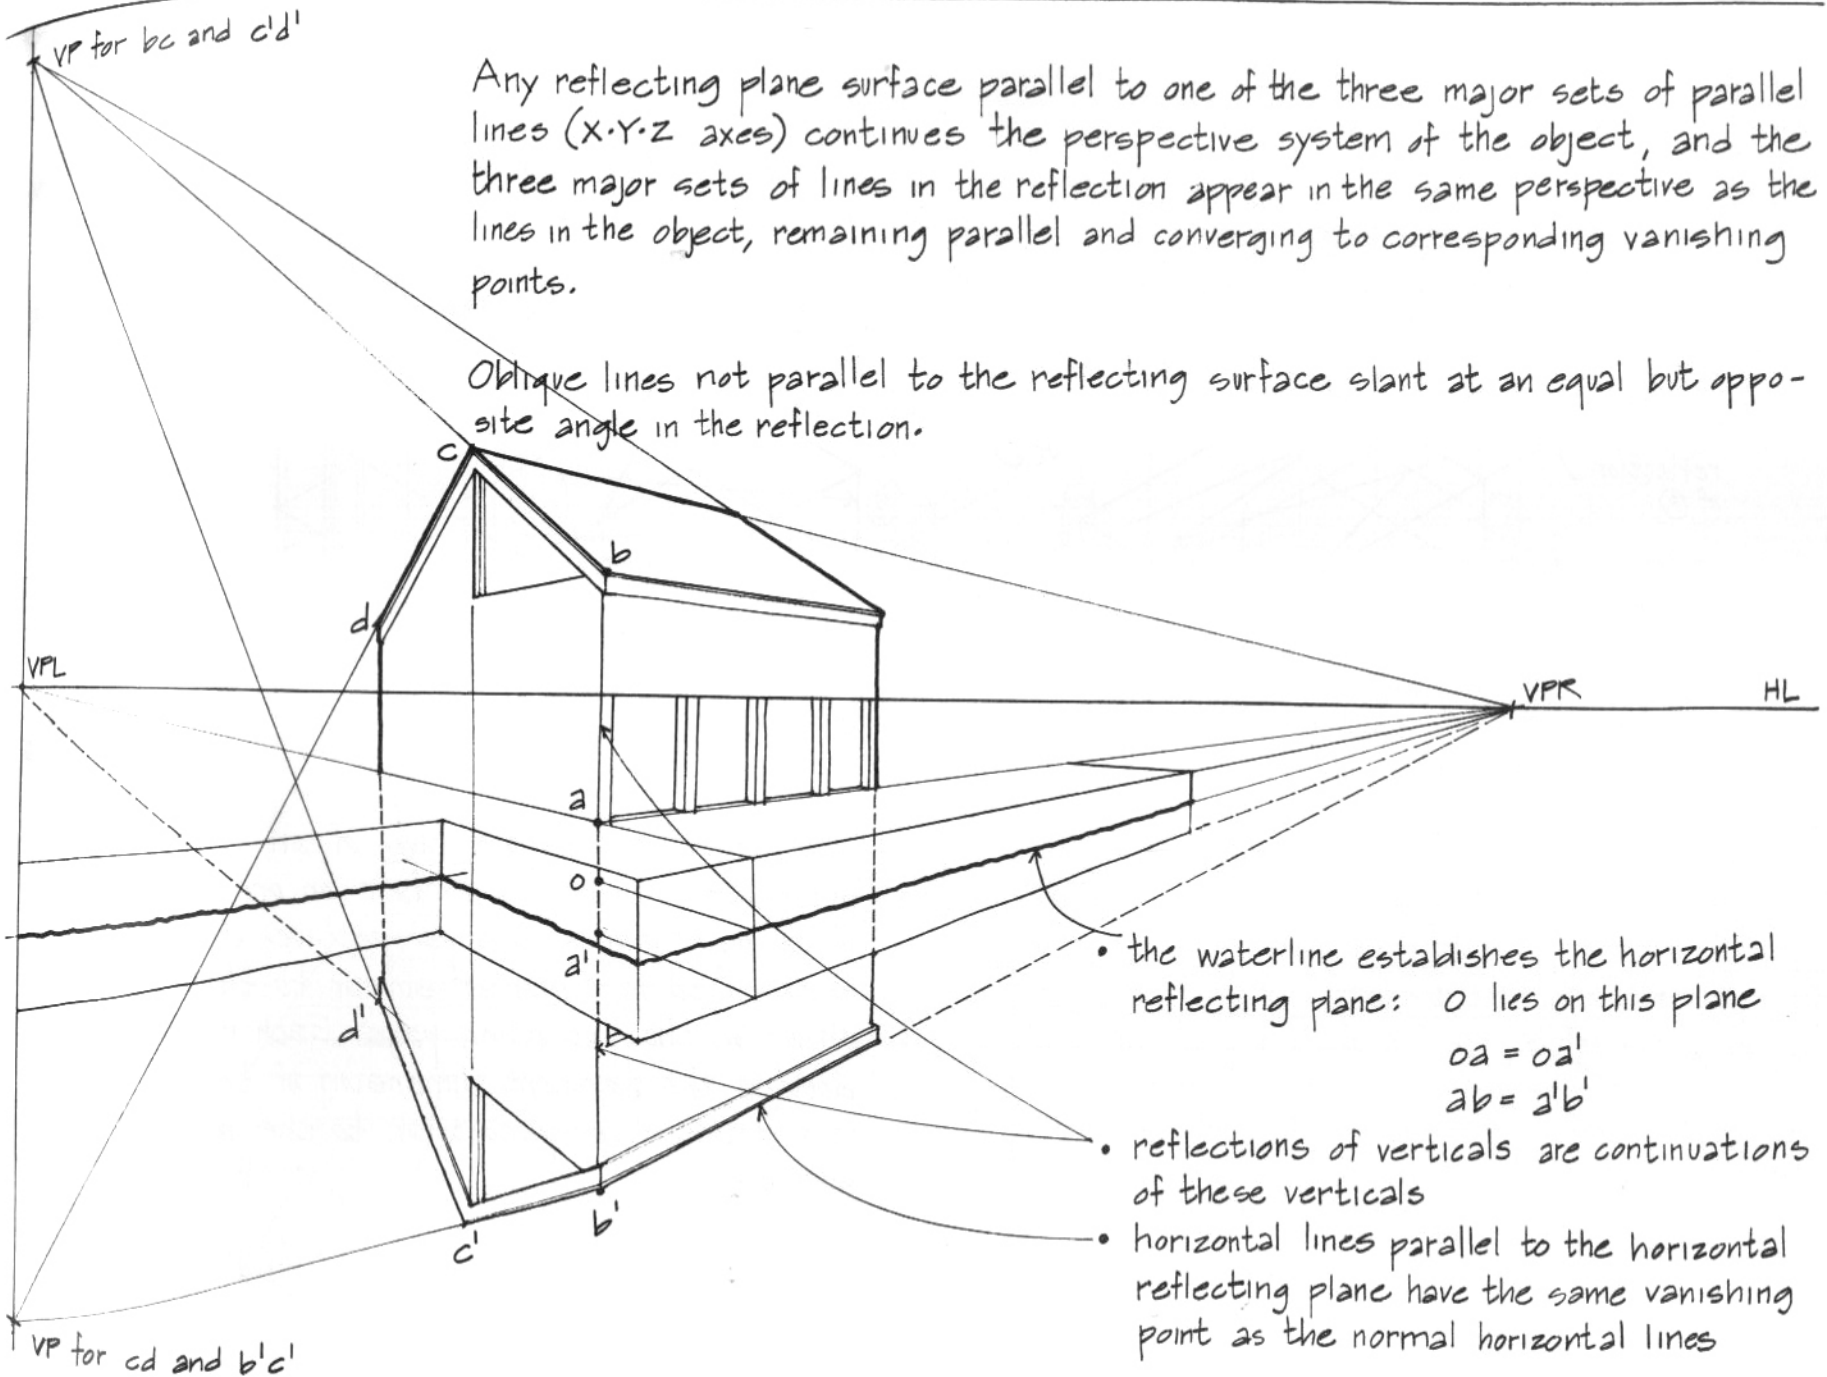 VP for bc and c'd'
Any reflecting plane surface parallel to one of the three major sets of parallel
lines (X·Y·Z axes) continues the perspective system of the object, and the
three major sets of lines in the reflection appear in the same perspective as the
lines in the object, remaining parallel and converging to corresponding vanishing
points.
Oblique lines not parallel to the reflecting surface slant at an equal but oppo-
site angle in the reflection.
c
b
d
VPL
VPR
HL
a
o
a'
d'
• the waterline establishes the horizontal
reflecting plane: O lies on this plane
oa = oa'
ab = a'b'
• reflections of verticals are continuations
of these verticals
b'
c'
• horizontal lines parallel to the horizontal
reflecting plane have the same vanishing
point as the normal horizontal lines
VP for cd and b'c'